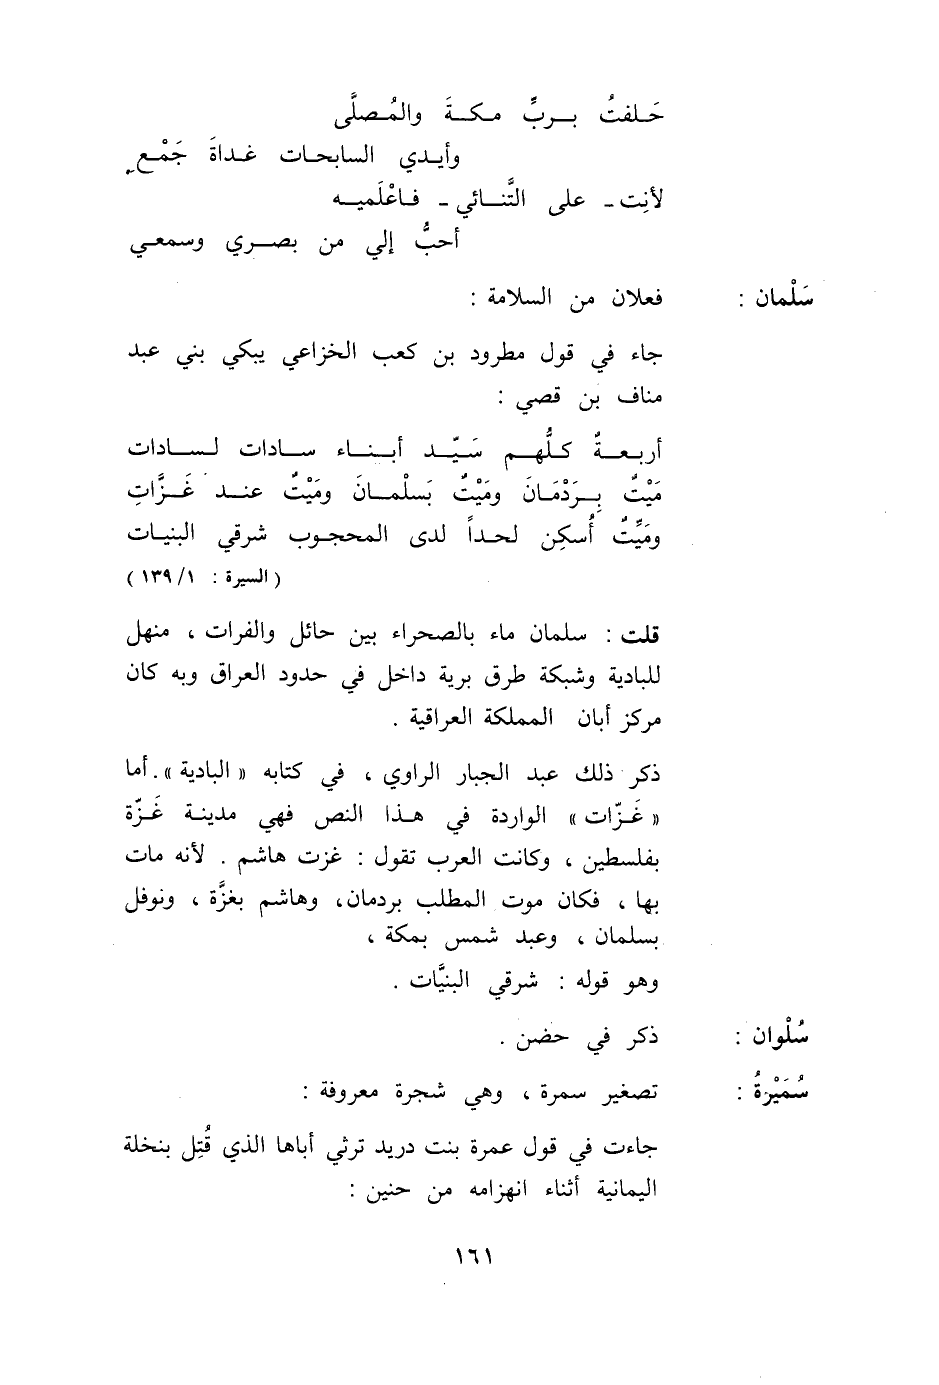 حَلفتُ بربِّ مكةَ والمُصلَّى
وأيدي السابحات غداةَ جَمْعِ
لأنتِ - على التَّنائي - فاعْلَميه
أحبُّ إلي من بصري وسمعي
سَلْمان : فعلان من السلامة :
جاء في قول مطرود بن كعب الخزاعي يبكي بني عبد
مناف بن قصي :
أربعةٌ كلُّهم سَيّد أبناء سادات لسادات
مَيْتٌ بِرَدْمَانَ ومَيْتٌ بَسلمانَ ومَيْتٌ عند غَزَّاتِ
ومَيِّتٌ أُسكِن لحداً لدى المحجوب شرقي البنيات
( السيرة : ١٣٩/١ )
قلت : سلمان ماء بالصحراء بين حائل والفرات ، منهل
للبادية وشبكة طرق برية داخل في حدود العراق وبه كان
مركز أبان المملكة العراقية .
ذكر ذلك عبد الجبار الراوي ، في كتابه « البادية » . أما
« غَزّات » الواردة في هذا النص فهي مدينة غَزّة
بفلسطين ، وكانت العرب تقول : غزت هاشم . لأنه مات
بها ، فكان موت المطلب بردمان، وهاشم بغزَّة ، ونوفل
بسلمان ، وعبد شمس بمكة ،
وهو قوله : شرقي البنيَّات .
سُلْوان : ذكر في حضن .
سُمَيْرةُ : تصغير سمرة ، وهي شجرة معروفة :
جاءت في قول عمرة بنت دريد ترثي أباها الذي قُتِل بنخلة
اليمانية أثناء انهزامه من حنين :
١٦١